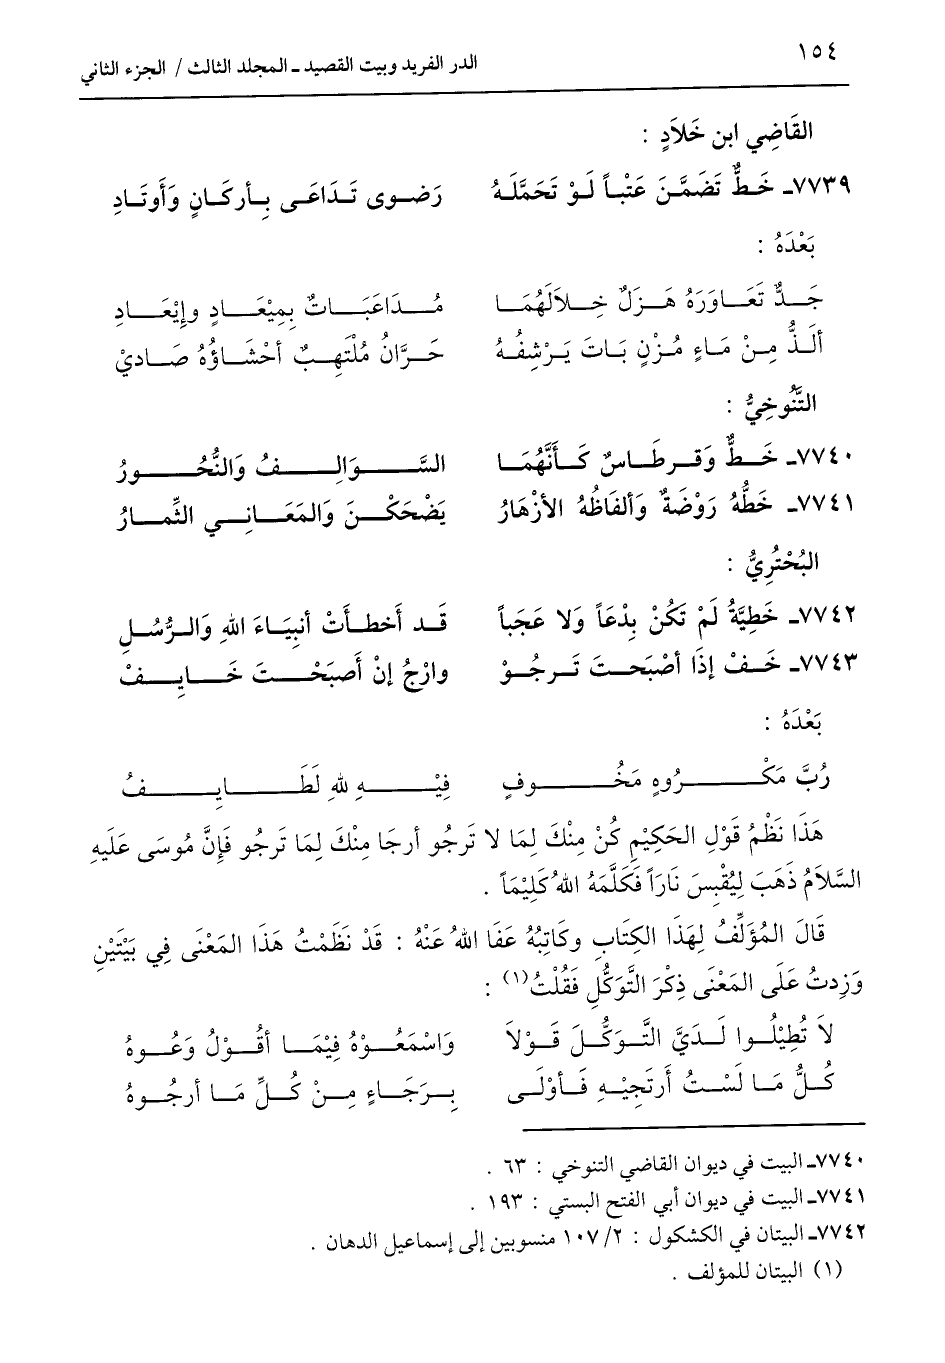 ١٥٤
الدر الفريد وبيت القصيد ـ المجلد الثالث / الجزء الثاني
القَاضِي ابن خَلاَدٍ :
٧٧٣٩ـ خَطٌّ تَضَمَّنَ عَتْباً لَوْ تَحَمَّلَهُ رَضوى تَدَاعَى بِأركَانٍ وَأوتَادِ
بَعْدَهُ :
جَدٌّ تَعَاوَرَهُ هَزلٌ خِلاَلَهُمَا مُدَاعَبَاتٌ بِمِيْعَادٍ وإيْعَادِ
ألَذُّ مِنْ مَاءِ مُزْنٍ بَاتَ يَرْشِفُهُ حَرَّانُ مُلْتَهِبٌ أحْشَاؤُهُ صَاديْ
التَّنُوخِيُّ :
٧٧٤٠ـ خَطٌّ وَقرطَاسٌ كَأنَّهُمَا السَّوَالِفُ وَالنُّحُورُ
٧٧٤١ـ خَطُّهُ رَوْضَةٌ وَألفَاظُهُ الأزْهَارُ يَضْحَكْنَ وَالمَعَانِي الثِّمَارُ
البُحْتُرِيُّ :
٧٧٤٢ـ خَطِيَّةُ لَمْ تَكُنْ بِدْعَاً وَلا عَجَباً قَد أَخطأَتْ أنبِيَاءَ اللهِ وَالرُّسُلِ
٧٧٤٣ـ خَفْ إذَا أصْبَحتَ تَرجُوْ وارْجُ إنْ أَصبَحْتَ خَايِفْ
بَعْدَهُ :
رُبَّ مَكْرُوهٍ مَخُوفٍ فِيْهِ للهِ لَطَايِفُ
هَذَا نَظْمُ قَوْلِ الحَكِيْمِ كُنْ مِنْكَ لِمَا لا تَرجُو أرجَا مِنْكَ لِمَا تَرجُو فَإنَّ مُوسَى عَلَيهِ
السَّلاَمُ ذَهَبَ لِيُقْبِسَ نَارَاً فَكَلَّمَهُ اللهُ كَلِيْمَاً .
قَالَ المُؤَلِّفُ لِهَذَا الكِتَابِ وكَاتِبُهُ عَفَا اللهُ عَنْهُ : قَدْ نَظَمْتُ هَذَا المَعْنَى فِي بَيْتَيْنِ
وَزِدتُ عَلَى المَعْنَى ذِكْرَ التَّوَكُّلِ فَقُلْتُ(١) :
لاَ تُطِيْلُوا لَدَيَّ التَّوَكُّلَ قَوْلاَ وَاسْمَعُوْهُ فِيْمَا أقُوْلُ وَعُوهُ
كُلُّ مَا لَسْتُ أرتَجِيْهِ فَأوْلَى بِرَجَاءٍ مِنْ كُلِّ مَا أرجُوهُ
٧٧٤٠ـ البيت في ديوان القاضي التنوخي : ٦٣ .
٧٧٤١ـ البيت في ديوان أبي الفتح البستي : ١٩٣ .
٧٧٤٢ـ البيتان في الكشكول : ٢/ ١٠٧ منسوبين إلى إسماعيل الدهان .
(١) البيتان للمؤلف .